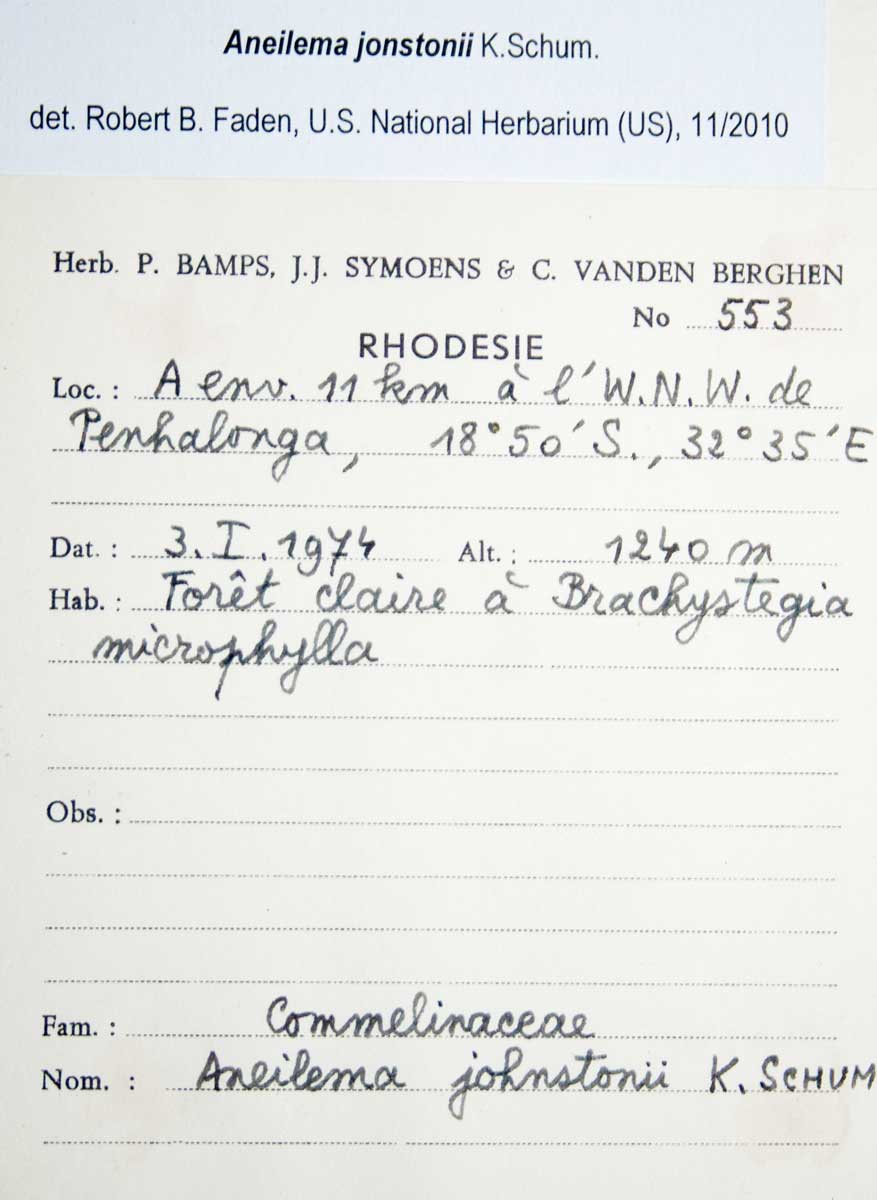 Aneilema jonstonii K.Schum.
det. Robert B. Faden, U.S. National Herbarium (US), 11/2010
Herb. P. BAMPS, J.J. SYMOENS & C. VANDEN BERGHEN
No 553
RHODESIE
Loc. : A env. 11 km à l'W.N.W. de
Penhalonga, 18°50'S., 32°35'E
Dat. : 3.I.1974 Alt. : 1240 m
Hab. : Forêt claire à Brachystegia
microphylla
Obs. :
Fam. : Commelinaceae
Nom. : Aneilema johnstonii K. SCHUM